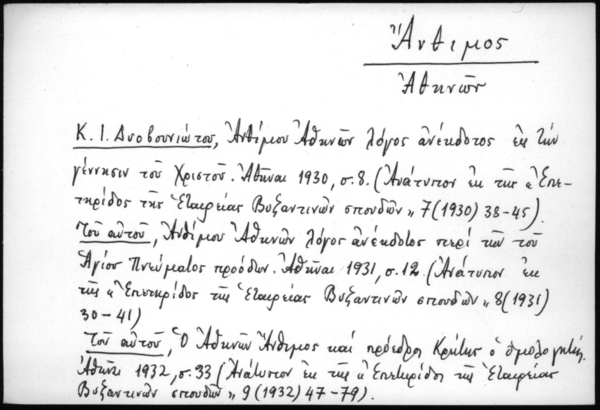 Ἄνθιμος
Ἀθηνῶν
Κ. Ι. Δυοβουνιώτου, Ἀνθίμου Ἀθηνῶν λόγος ἀνέκδοτος εἰς τὴν
γέννησιν τοῦ Χριστοῦ. Ἀθῆναι 1930, σ. 8. (Ἀνάτυπον ἐκ τῆς « Ἐπε-
τηρίδος τῆς Ἑταιρείας Βυζαντινῶν σπουδῶν „ 7 (1930) 38-45).
Τοῦ αὐτοῦ, Ἀνθίμου Ἀθηνῶν λόγος ἀνέκδοτος περὶ τῆς τοῦ
Ἁγίου Πνεύματος προόδου. Ἀθῆναι 1931, σ. 12. (Ἀνάτυπον ἐκ
τῆς « Ἐπετηρίδος τῆς Ἑταιρείας Βυζαντινῶν σπουδῶν „ 8 (1931)
30-41)
Τοῦ αὐτοῦ, Ὁ Ἀθηνῶν Ἄνθιμος καὶ πρόεδρος Κρήτης ὁ ὁμολογητής.
Ἀθῆναι 1932, σ. 33 (Ἀνάτυπον ἐκ τῆς « Ἐπετηρίδος τῆς Ἑταιρείας
Βυζαντινῶν σπουδῶν „ 9 (1932) 47-79).